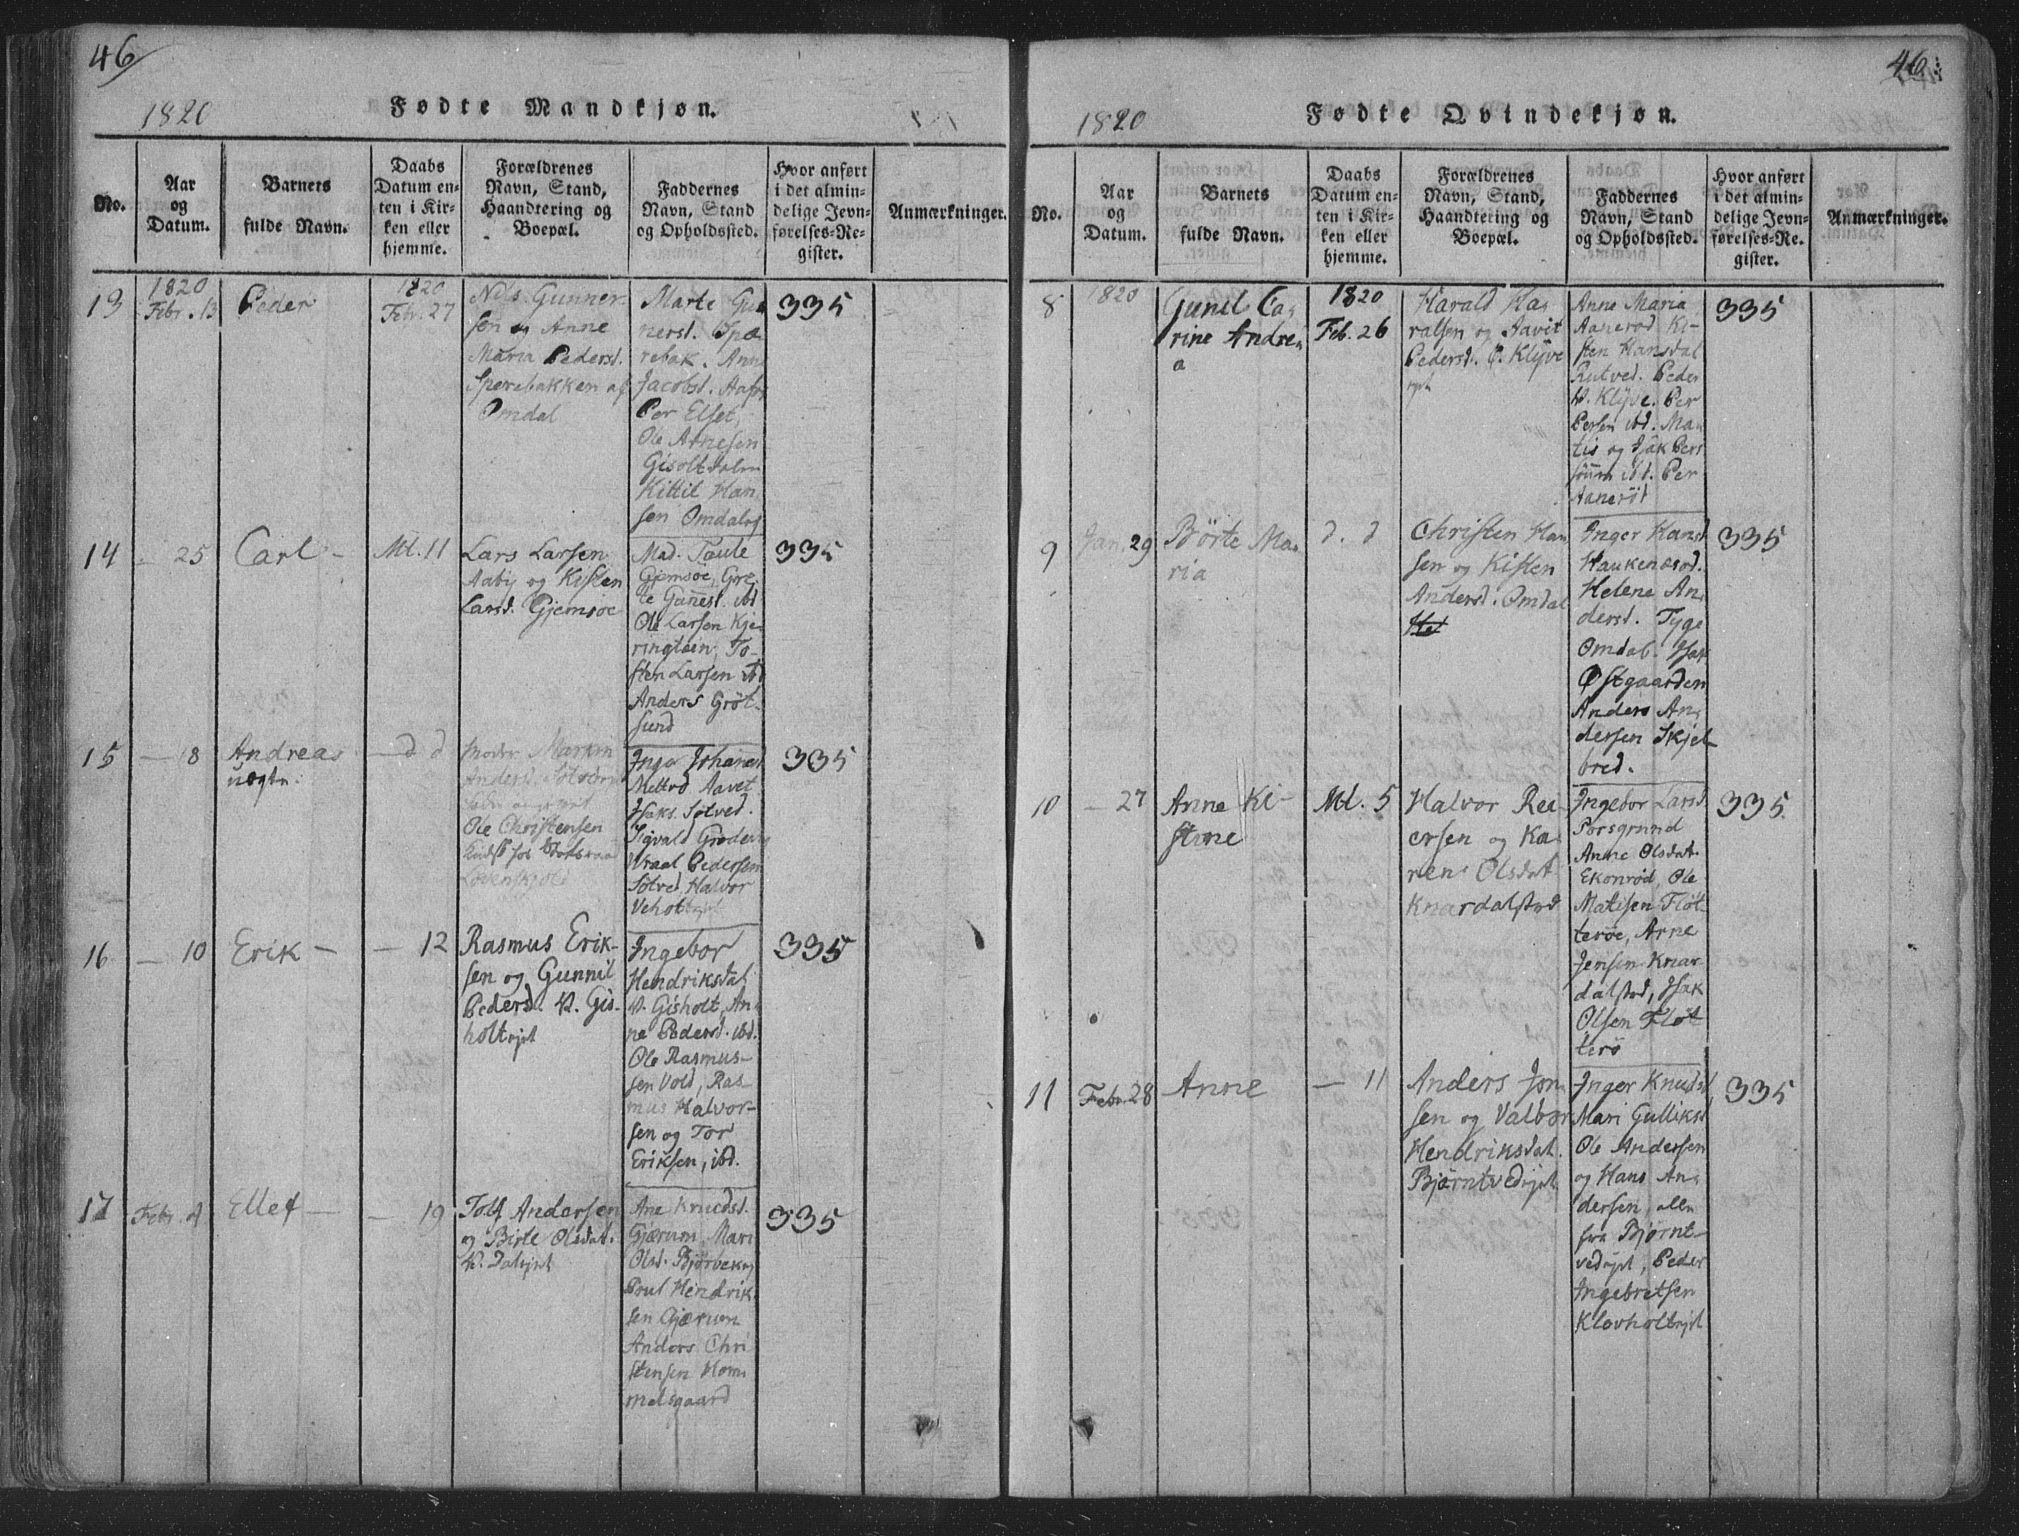 46
1820
Fødte Mandkjøn.
No.
Aar
og
Datum.
Barnets
fulde Navn.
Daabs
Datum en-
ten i Kir-
ken eller
hjemme.
Forældrenes
Navn, Stand,
Haandtering og
Boepæl.
Faddernes
Navn, Stand
og Opholdssted.
Hvor anført
i det almin-
delige Jevn-
førelses-Re-
gister.
Anmærkninger.
13
1820
Febr. 13
Peder
1820
Febr. 27
Nils Gunner
sen og Anne
Maria Pedersd.
Sperebakken af
Omdal
Marte Gun
nersd. Spæ
rebak. Ann
Jacobsd.
Per Elset,
Ole Arnesen
Gisoltdalen
Kittil Han
sen Omdal
335
14
25
Carl -
Mt. 11
Lars Larsen
Aaby og Kisten
Larsd. Gjemsøe
Mad. Taule
Gjemsøe, Gre
te Gunnesd. ibd
Ole Larsen Kje
ringtein, To-
sten Larsen ibd
Anders Grøt-
sund
335
15
- 8
Andreas
uægte.
- d d
Moder Maren
Andersd. Sølvedr
Ole Christensen
Løvenskjold
Inger Johanesd
Aavet
Isaks. Sølved.
Sigvald Groden
Wraal Pedersen
Sølved, Halvor
Veholt
335
16
- 10
Erik -
- 12
Rasmus Erik-
sen og Gunnil
Pedersd. V. Gis-
holtejet
Ingebor
Hendriksdat
V. Gisholt, An-
ne Pedersd. ibd.
Ole Rasmus-
sen Vold, Ras-
mus Halvor-
sen og Tor
Eriksen, ibd.
335
17
Febr.
Ellef -
- 19
Tolf Andersen
og Birte Olsdat.
V. Dalejet
Ane Knudsd.
Gjærum, Mari
Olsd. Bjørvek
Poul Hendrik
sen Gjærum
Anders Chri
stensen Hom
melsgaard
335
46
1820
Fødte Qvindekjøn.
No.
Aar
og
Datum.
Barnets
fulde Navn.
Daabs
Datum en-
ten i Kir-
ken eller
hjemme.
Forældrenes
Navn, Stand,
Haandtering og
Boepæl.
Faddernes
Navn, Stand
og Opholdssted.
Hvor anført
i det almin-
delige Jevn-
førelses-Re-
gister.
Anmærkninger.
8
1820
Gunil Ca-
rine Andre-
a
1820
Feb. 26
Harald Ha-
ralsen og Aavit
Pedersd. Ø. Klyve
ejet
Anne Maria
Aanerød Ki-
sten Hansdat
Rutved. Peder
V. Klyve. Per
Persen ibd. Ma-
tis og Isak Pers
sønner ibd. Per
Aanerød
335
9
Jan. 29
Børte Ma-
ria
d. d
Christen Han
sen og Kisten
Andersd. Omdal
Inger Hansd
Haukenæsød.
Helene An-
dersd. Tyge
Omdal. Isak
Østgaarden
Anders An-
dersen Skjel-
bred.
335
10
- 27
Anne Ki-
stine
Mt. 5
Halvor Rei-
ersen og Ka-
ren Olsdat
Knardalstrd
Ingebor Larsd
Porsgrund
Anne Olsdat.
Ekonrød, Ole
Matisen Fløt
terøe, Arne
Jensen Knar
dalstrd, Isak
Olsen Fløt
terø
335
11
Febr. 28
Anne
- 11
Anders Jon-
sen og Valbor
Hendriksdat.
Bjørntvedejet
Inger Knudsd,
Mari Gulliksd
Ole Andersen
og Hans An-
dersen, alle
fra Bjørnt-
vedejet, Peder
Ingebretsen
Klovholtejet
335